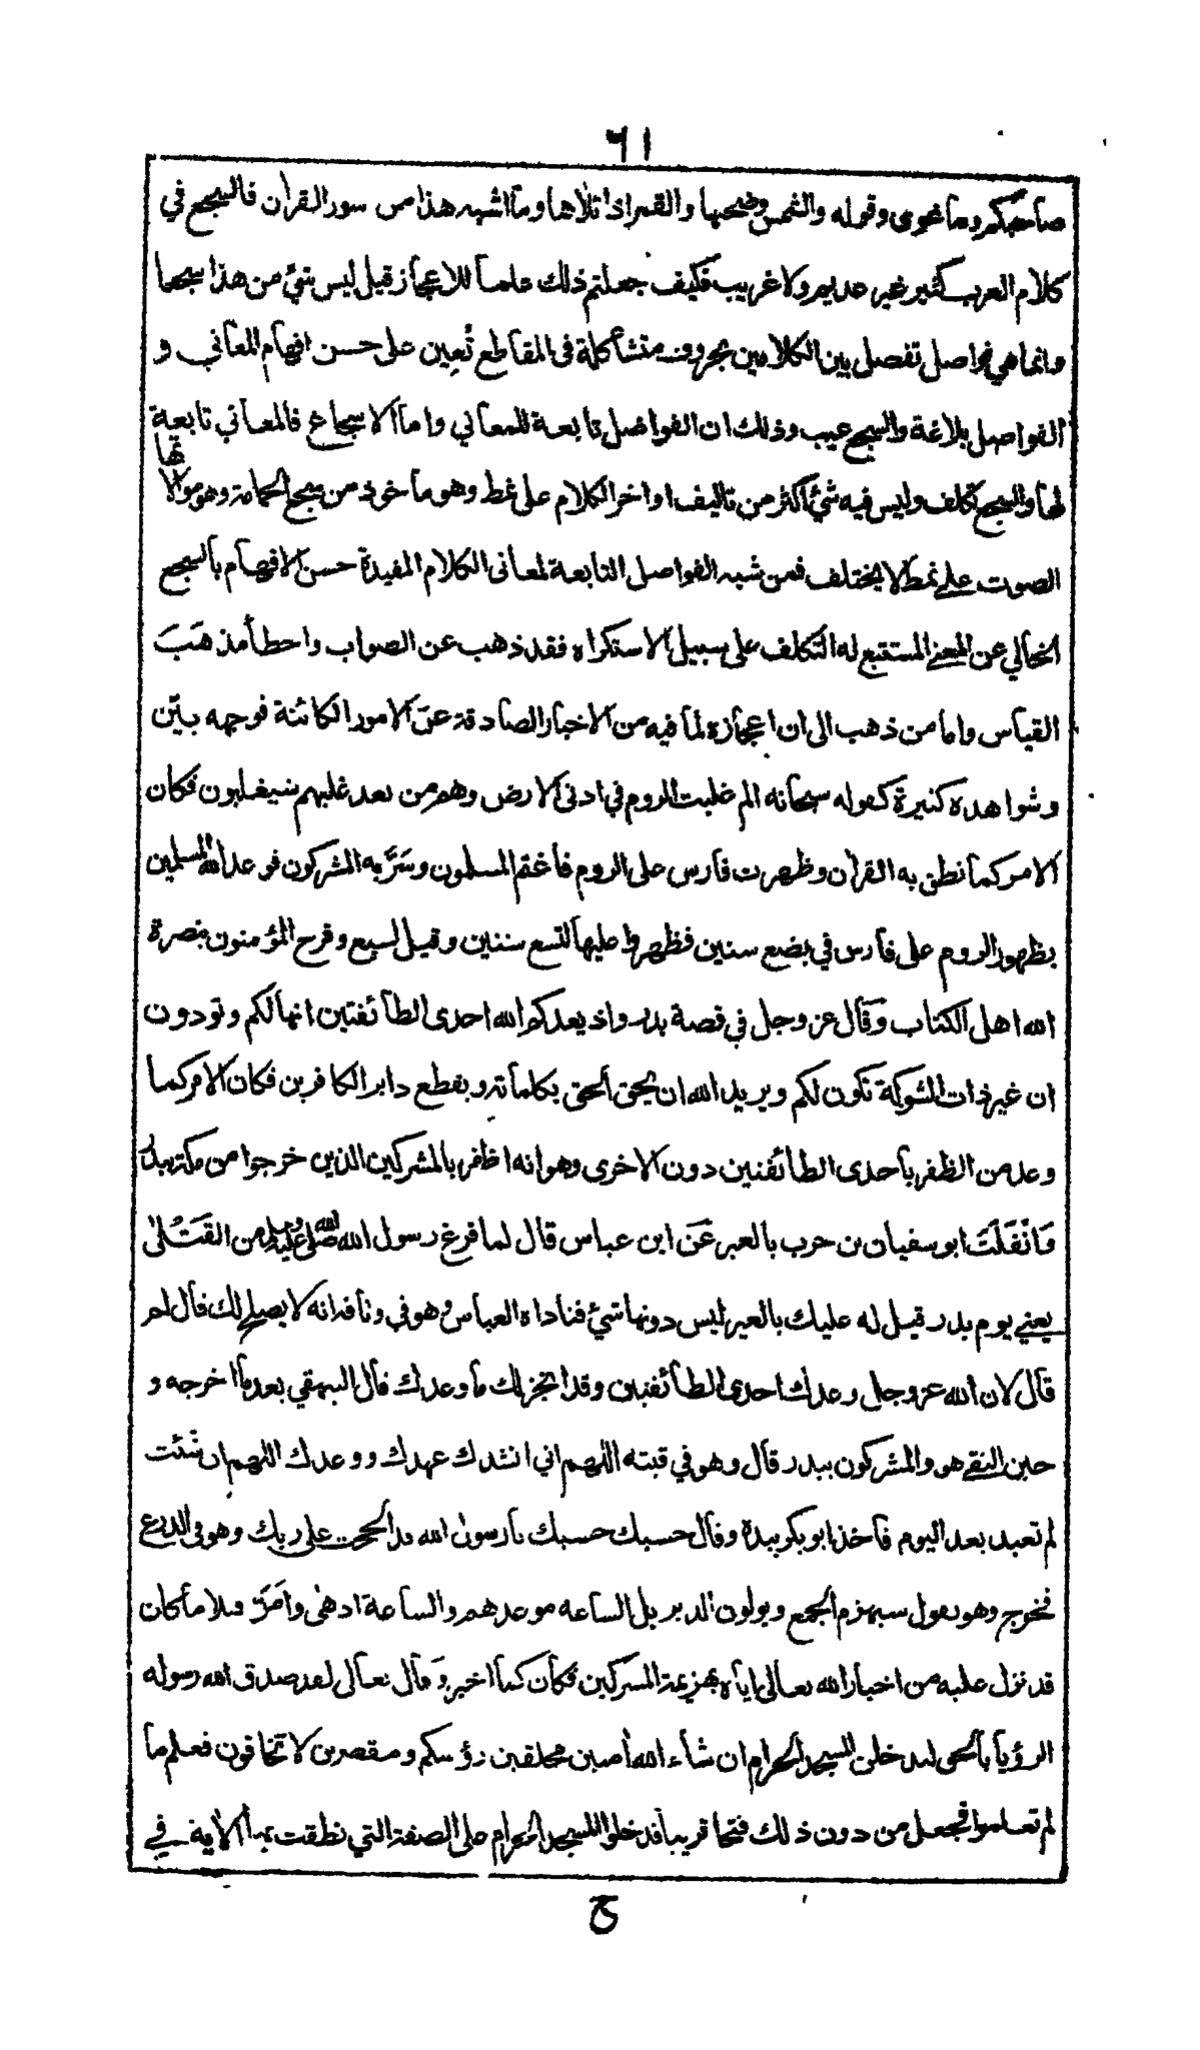 ٦١
صاحبكم وما غوى وقوله والشمس وضحىها والقمر اذا تلاها وما اشبه هذا من سور القران فالسجع في
كلام العرب كثير غير عديم ولا غريب فكيف جعلتم ذلك علما للاعجاز قيل ليس شئ من هذا سجعا
وانما هي فواصل تفصل بين الكلامين بحروف متشاكلة في المقاطع تُعِين على حسن افهام المعاني و
الفواصل بلاغة والسجع عيب وذلك ان الفواصل تابعة للمعاني واما الاسجاع فالمعاني تابعة
لها والسجع تكلف وليس فيه شئ اكثر من تاليف اواخر الكلام على نمط وهو ماخوذ من سجع الحمامة وهو موالاتها
الصوت على نمط لا يختلف فمن شبه الفواصل التابعة لمعانى الكلام المفيدة حسن الافهام بالسجع
الخالي عن المعنى المستتبع له التكلف على سبيل الاستكراه فقد ذهب عن الصواب واخطأ مذهَبَ
القياس واما من ذهب الى ان اعجازه لما فيه من الاخبار الصادقة عن الامور الكائنة فوجهه بيّن
وشواهده كثيرة كقوله سبحانه الم غلبت الروم في ادنى الارض وهم من بعد غلبهم سيغلبون فكان
الامر كما نطق به القران وظهرت فارس على الروم فاغتم المسلمون وسَرَّ به المشركون فوعد الله المسلمين
بظهور الروم على فارس في بضع سنين فظهروا عليها لتسع سنين وقيل لسبع وفرح المؤمنون بنصرة
الله اهل الكتاب وقال عز وجل في قصة بدر واذ يعدكم الله احدى الطائفتين انها لكم وتودون
ان غير ذات الشوكة تكون لكم ويريد الله ان يحق الحق بكلماته ويقطع دابر الكافرين فكان الامر كما
وعد من الظفر باحدى الطائفتين دون الاخرى وهو انه اظفر بالمشركين الذين خرجوا من مكة ببدر
وَانْفَلَتَ ابو سفيان بن حرب بالعير عَنْ ابن عباس قال لما فرغ رسول الله صلى الله عليه وسلم من القَتْلىٰ
يعني يوم بدر قيل له عليك بالعير ليس دونها شئ فناداه العباس وهو في وثاقه انه لا يصلح لك قال لم
قال لان الله عز وجل وعدك احدى الطائفتين وقد انجز لك ما وعدك قال البيهقي بعد ما اخرجه و
حين التقى هو والمشركون ببدر قال وهو في قبته اللهم اني انشدك عهدك ووعدك اللهم ان شئت
لم تعبد بعد اليوم فاخذ ابو بكر بيدة وقال حسبك حسبك يا رسول الله قد الححت على ربك وهو في الدرع
فخرج وهو يقول سيهزم الجمع ويولون الدبر بل الساعه موعدهم والساعة ادهى وامَرّ وقلما كان
قد نزل عليه من اخبار الله تعالى اياه بهزيمة المشركين فكان كما اخبر وَقال تعالى لقد صدق الله رسوله
الرؤيا بالحق لتدخلن المسجد الحرام ان شاء الله امنين محلقين رؤسكم ومقصرين لا تخافون فعلم ما
لم تعلموا فجعل من دون ذلك فتحا قريبا فدخلوا المسجد الحرام على الصفة التي نطقت بها الاية في
ح